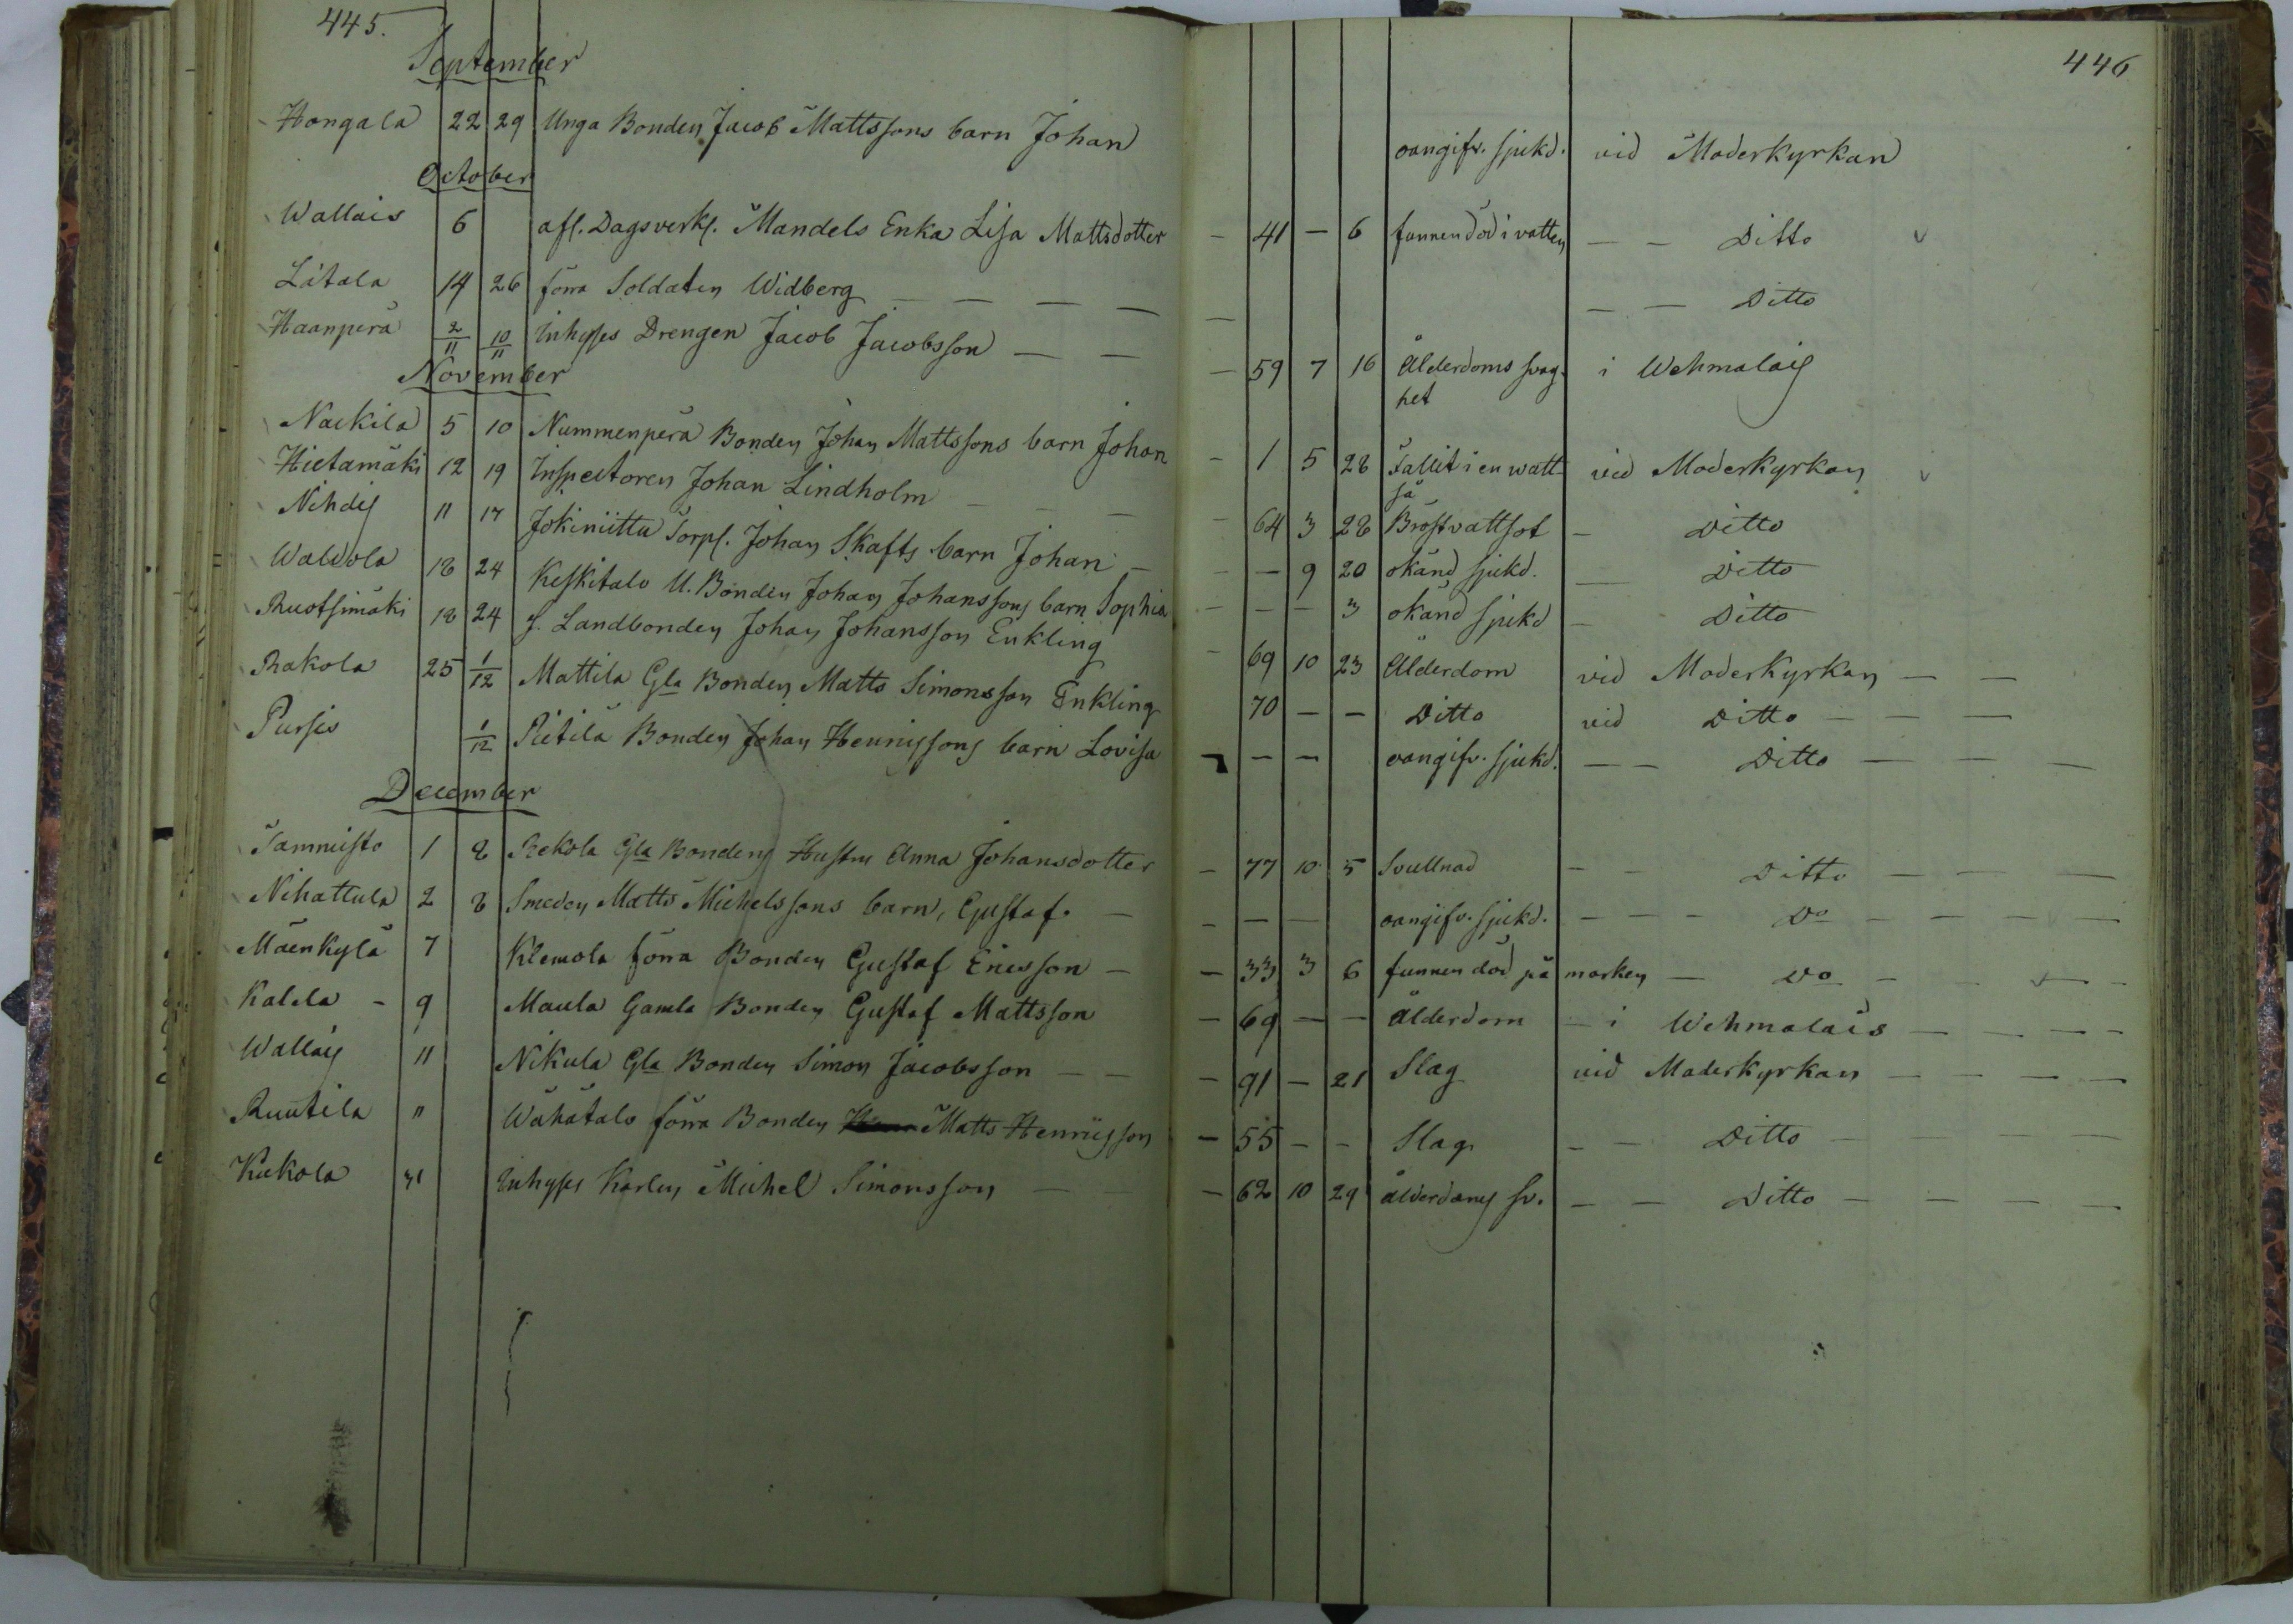 445.
446
September
Hongala 22 29 Unga Bonden Jacob Mattssons barn Johan oangifv. sjukd. vid Moderkyrkan
October
Wallais 6 afl. Dagsverk. Mandels Enka Lisa Mattsdotter – 41 – 6 funnen död i vatten – – Ditto
Låtala 14 26 förra Soldaten Widberg – – – – – – – Ditto
Haanperä 2/11 10/11 Inhyses Drengen Jacob Jacobsson – – – 59 7 16 Ålderdoms svag- i Wehmalais
het
November
Nackila 5 10 Nummenperä Bonden Johan Mattssons barn Johan – 1 5 28 Fallit i en watt- vid Moderkyrkan
så
Hietamäki 12 19 Inspectoren Johan Lindholm – – – – 64 3 28 Bröstvattsot – Ditto
Nihdis 11 17 Jokiniittu Torp. Johan Skafts barn Johan – – – 9 20 okänd sjukd. – Ditto
Waldola 18 24 Keskitalo U. Bonden Johan Johanssons barn Sophia – – – 3 okänd sjukd – Ditto
Ruotsimäki 18 24 f. Landbonden Johan Johansson Enkling – 69 10 23 Ålderdom vid Moderkyrkan – –
Rakola 25 1/12 Mattila Gla Bonden Matts Simonsson Enkling 70 – – Ditto vid Ditto – – –
Pursis 1/12 Pietilä Bonden Johan Henrissons barn Lovisa – – – oangifv. sjukd. – – Ditto – – –
December
Tammisto 1 8 Rekola Gla Bondens Hustru Anna Johansdotter – 77 10 5 Svullnad – – Ditto – – –
Nihattula 2 8 Smeden Matts Michelssons barn, Gustaf. – – – – oangifv. sjukd. – – – Do – – – –
Mäenkylä 7 Klemola förra Bonden Gustaf Ericsson – – 33 3 6 funnen död på marken – Do – – – –
Kalela – 9 Maula Gamla Bonden Gustaf Mattsson – 69 – – Ålderdom – i Wehmalais – – – –
Wallais 11 Nikula Gla Bonden Simon Jacobsson – – – 91 – 21 Slag vid Moderkyrkan – – – –
Ruutila " Wähätalo förra Bonden Matts Henricsson – 55 – – Slag – – Ditto – – – –
Kukola 31 Inhyses Karlen Michel Simonsson – – – 62 10 29 ålderdoms sv. – – Ditto – – – –